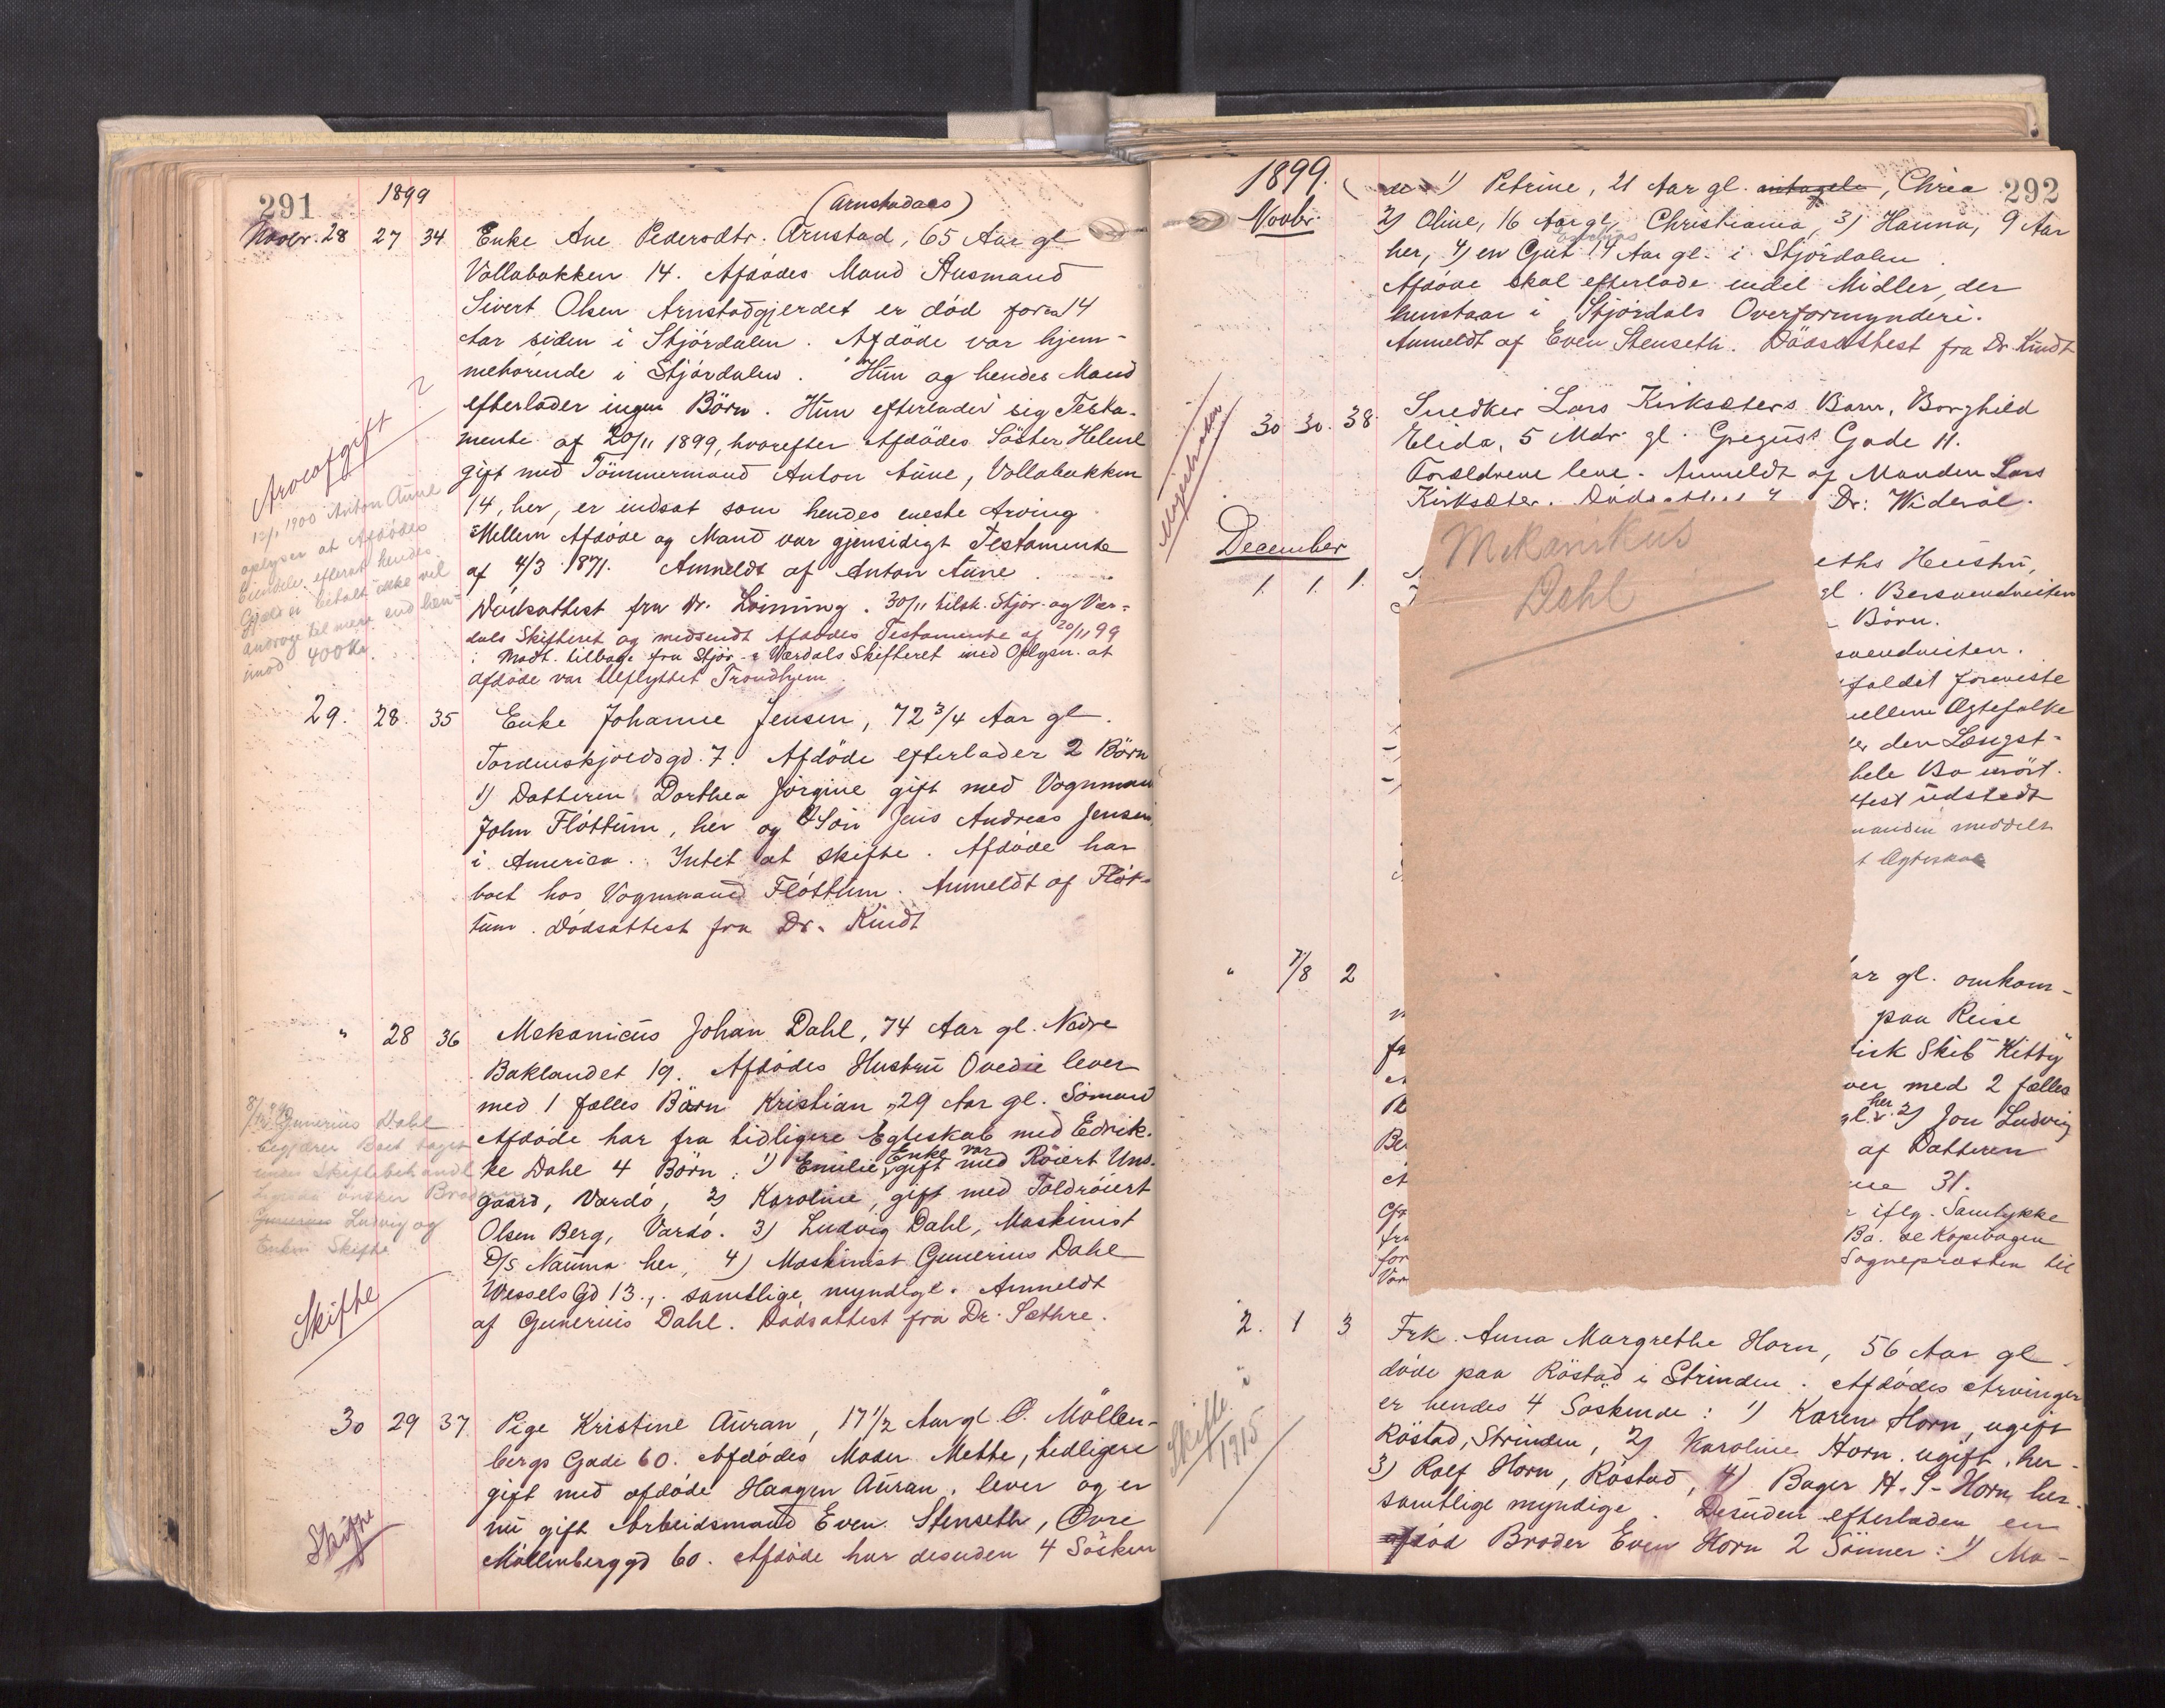 291
1899
(Arnstadaas)
Novbr. 28 27 34 Enke Ane Pedersdtr. Arnstad, 65 Aar gl
Vollabakken 14. Afdødes Mand Husmand
Sivert Olsen Arnstadgjerdet er død for ca 14
Aar siden i Stjørdalen. Afdøde var hjem-
mehørende i Stjørdalen. Hun og hendes Mand
efterlader ingen Börn. Hun efterlader sig Testa-
mente af 20/11 1899, hvorefter Afdödes Söster Helene
gift med Tömmermand Anton Aune, Vollabakken
14, her, er indsat som hendes eneste Arving
Mellem Afdöde og Mand var gjensidigt Testamente
af 4/3 1871. Anmeldt af Anton Aune
Dødsattest fra Dr. Leining. 30/11 tilsk. Stjör- og Vær-
dals Skifteret og medsendt Afdødes Testamente af 20/11 99
Modt. tilbage fra Stjør- & Værdals Skifteret med Oplysn. at
Afdøde var tilflyttet Trondhjem
Arveafgift ?
12/1 1900 Anton Aune
oplyser at Afdødes
Eiendele efterat hendes
Gjæld er betalt ikke vil
andrage til mere end hen-
imod 400 Kr.
29. 28. 35 Enke Johanne Jensen, 72 3/4 Aar gl.
Tordenskjoldsgd. 7. Afdöde efterlader 2 Börn
1) Datteren Dorthea Jörgine gift med Vognmand
John Flöttum, her og Sön Jens Andreas Jensen
i America. Intet at skifte. Afdöde har
boet hos Vognmand Flöttum. Anmeldt af Flöt-
tum. Dödsattest fra Dr. Kindt
" 28 36 Mekanicus Johan Dahl, 74 Aar gl. Nedre
Baklandet 19. Afdödes Hustru Ovedie lever
med 1 fælles Barn Kristian, 29 Aar gl. Sömand
Afdöde har fra tidligere Egteskab med Edrik-
ke Dahl 4 Börn: 1) Emilie, Enke var gift med Röiert Uns-
gaard, Vardö, 2) Karoline, gift med Toldröiert
Olsen Berg, Vardö. 3) Ludvig Dahl, Maskinist
D/S Nauma her, 4) Maskinist Gunerius Dahl
Wessels Gd 13., samtlige myndige. Anmeldt
af Gunerius Dahl. Dødsattest fra Dr. Sæthre.
Gunerius Dahl
begjærer Boet taget
under Skiftebehandl
ønsker Broderen
Gunerius Ludvig og
Enken Skifte
Skifte
30 29 37 Pige Kristine Auran, 17 1/2 Aar gl. Ø. Möllen-
bergs Gade 60. Afdödes Moder Mette, tidligere
gift med afdöde Haagen Auran, lever og er
nu gift Arbeidsmand Even Stenseth, Övre
Möllenberggd 60. Afdöde har desuden 4 Södsken
Skifte
292
1899.
Novbr.
1) Petrine, 21 Aar gl. Chria
2) Oline, 16 Aar gl, Christiania, 3) Hanna, 9 Aar
her, 4) en Gut 14 Aar gl. i Stjördalen
Afdöde skal efterlade endel Midler, der
henstaar i Stjördals Overformynderi.
Anmeldt af Even Stenseth. Dödsattest fra Dr. Kindt
Magistraten
30 30. 38. Snedker Lars Kirksæters Barn, Borghild
Elida, 5 Mdr. gl. Gregus's Gade 11.
Forældrene leve. Anmeldt af Manden Lars
Kirksæter. Dødsattest Dr: Wideröe.
December
Mekanikus
Dahl
1. 1. 1.
eths Hustru,
gl. Bersvendveiten
Börn.
svendveiten.
foldet foreviste
mellem Ægtefolk
den Længst-
hele Bo uskört.
attest udstedt
manden meddelt
t Ægteskab
" 7/8 2
ar gl. omkom-
paa Reise
isk Skib "Kitty"
ver med 2 fælles
gl. her. 2) Jon Ludvig
af Datteren
31.
iflg. Samtykke
Ba. de Kopibogen
Sognepræsten til
fr
Be
fra
for
2. 1 3 Frk. Anna Margrethe Horn, 56 Aar gl.
döde paa Röstad i Strinden. Afdödes Arvinger
er hendes 4 Söskende: 1) Karen Horn, ugift
Röstad, Strinden, 2) Karoline Horn, ugift, her
3) Rolf Horn, Röstad, 4) Bager H. P. Horn, her
samtlige myndige. Desuden efterladen en
afdöd Broder Even Horn 2 Sönner: 1) Ma-
Skifte
1915